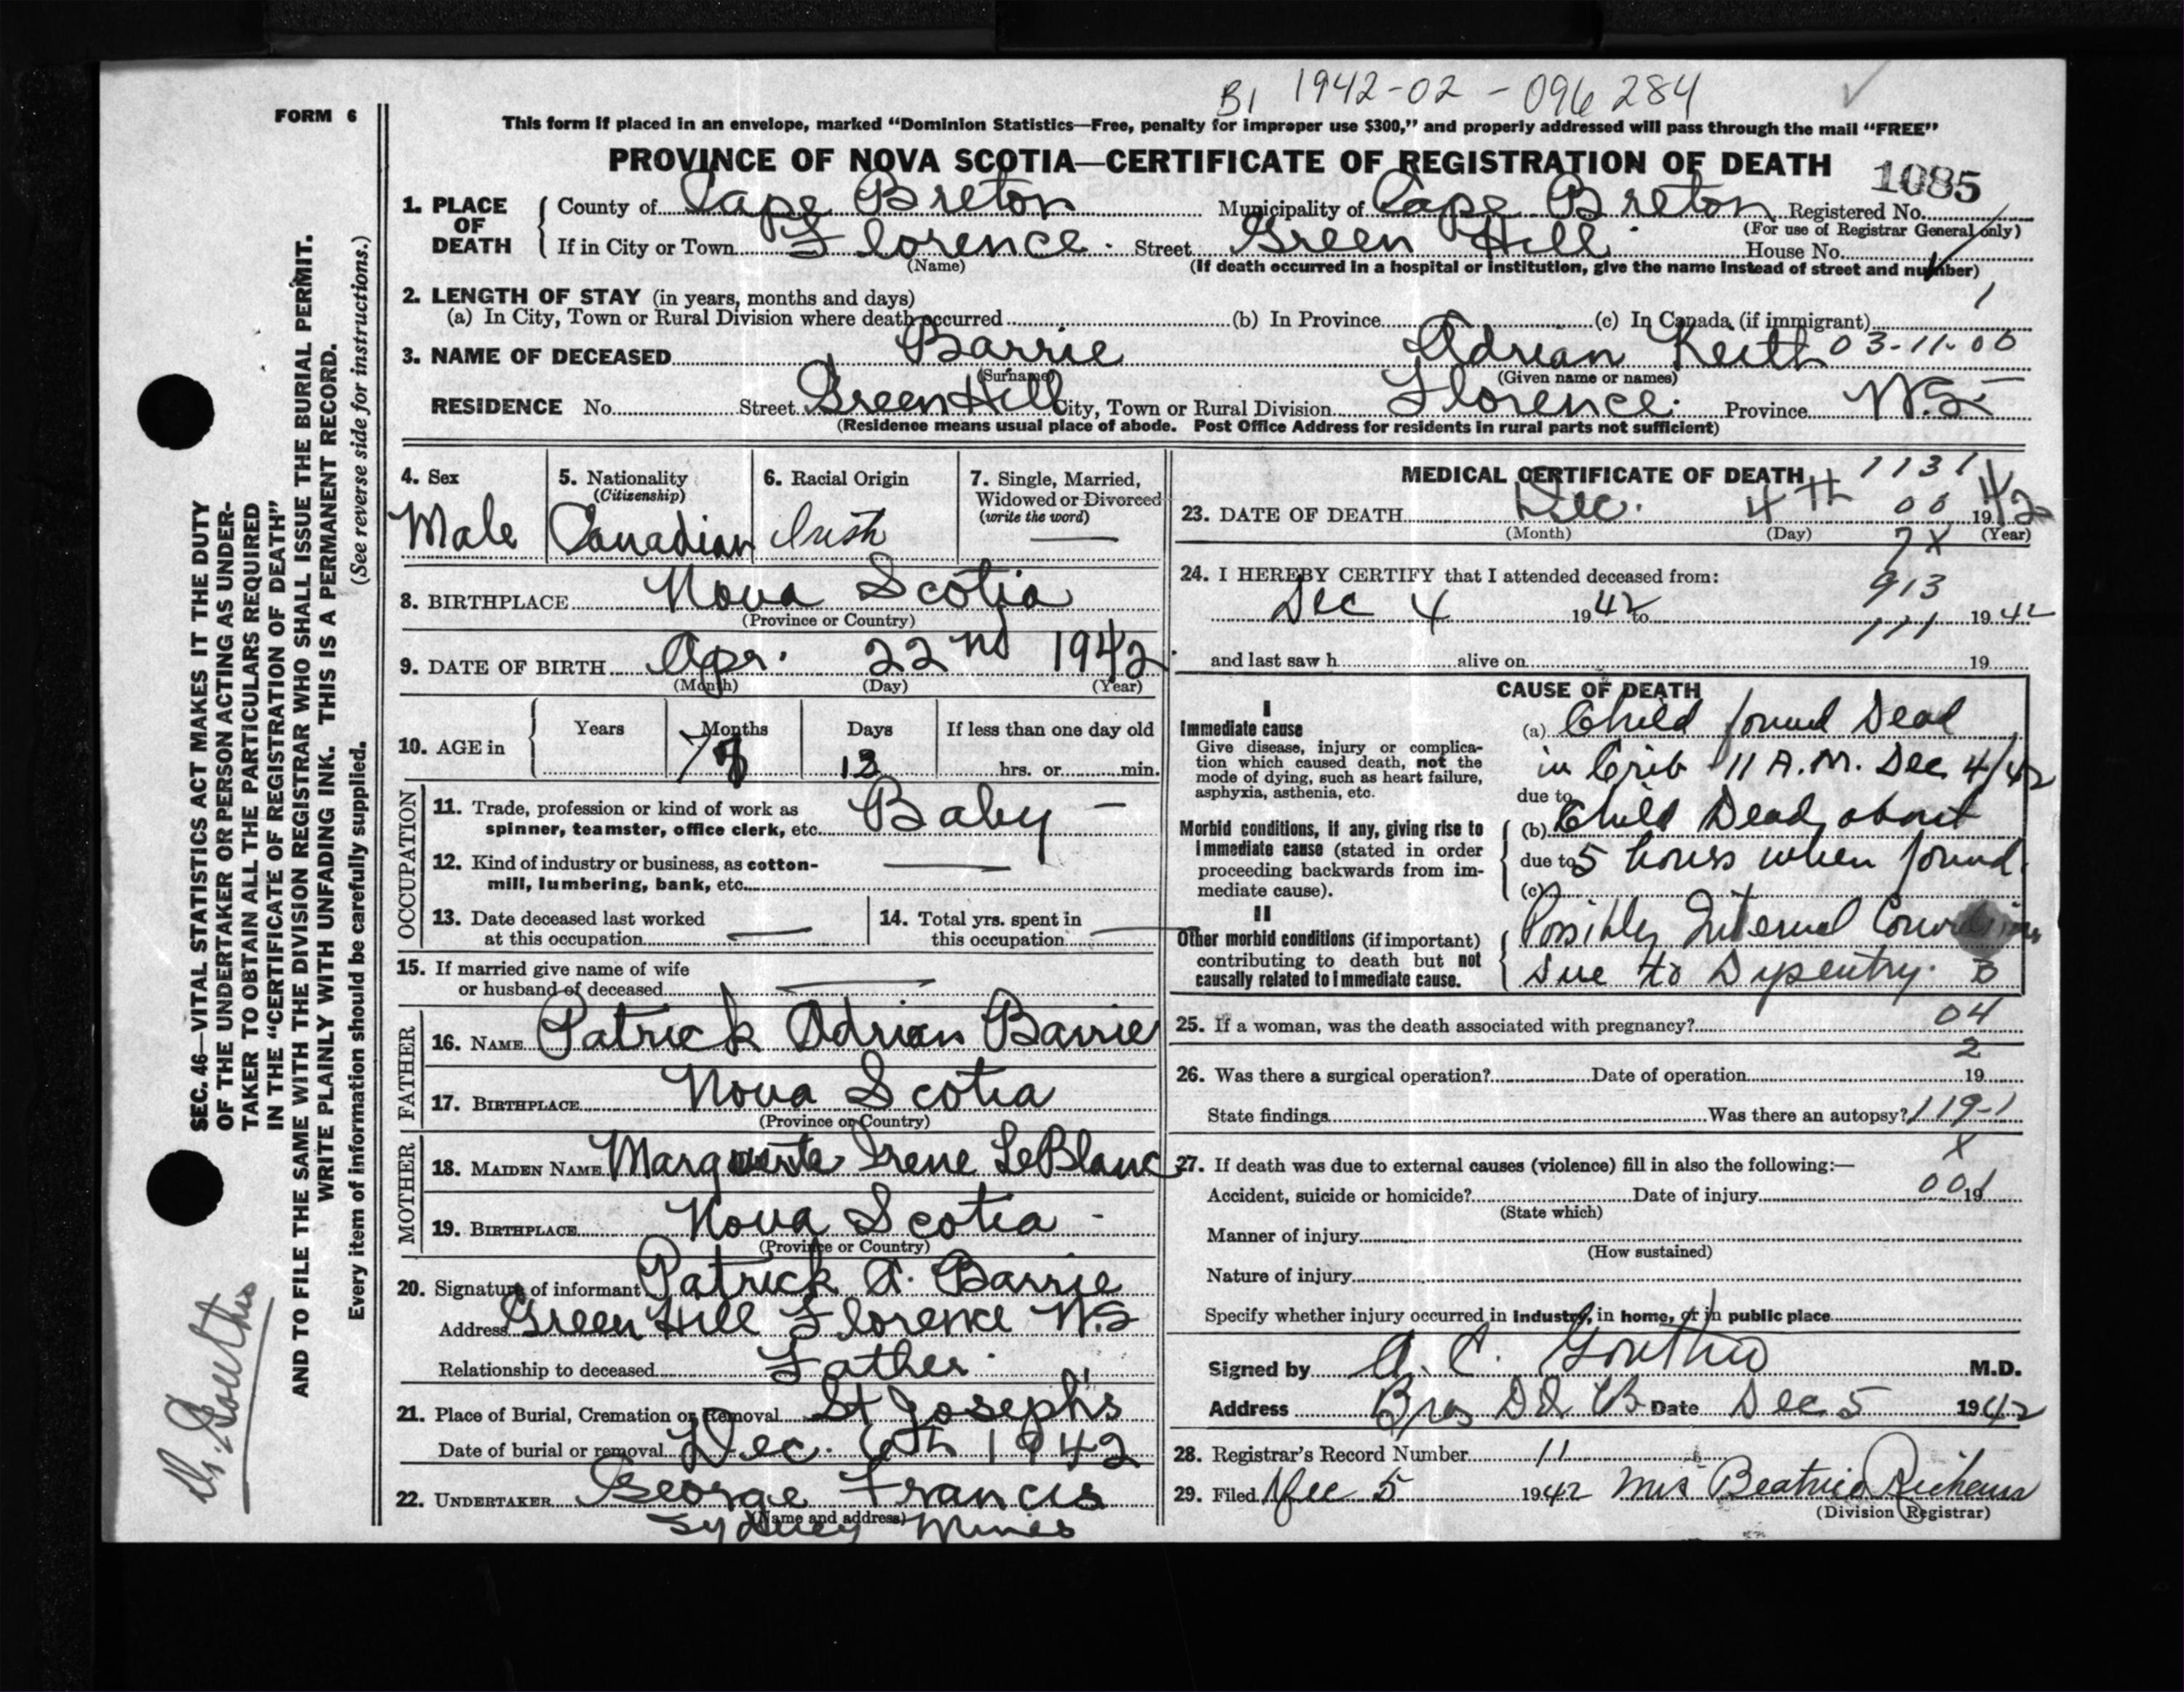 B1 1942-02-096 284
FORM 6
This form if placed in an envelope, marked "Dominion Statistics—Free, penalty for improper use $300," and properly addressed will pass through the mail "FREE"
PROVINCE OF NOVA SCOTIA—CERTIFICATE OF REGISTRATION OF DEATH 1085
1. PLACE OF DEATH
County of Cape Breton Municipality of Cape Breton Registered No.
(For use of Registrar General only)
If in City or Town Florence. Street Green Hill House No.
(Name) (If death occurred in a hospital or institution, give the name instead of street and number)
2. LENGTH OF STAY (in years, months and days) 1
(a) In City, Town or Rural Division where death occurred (b) In Province (c) In Canada (if immigrant)
3. NAME OF DECEASED Barrie Adrian Keith 03-11-00
(Surname) (Given name or names)
RESIDENCE No. Street Green Hill City, Town or Rural Division Florence. Province N.S.
(Residence means usual place of abode. Post Office Address for residents in rural parts not sufficient)
4. Sex Male
5. Nationality (Citizenship) Canadian
6. Racial Origin Irish
7. Single, Married, Widowed or Divorced (write the word) —
8. BIRTHPLACE Nova Scotia
(Province or Country)
9. DATE OF BIRTH Apr. 22nd 1942
(Month) (Day) (Year)
10. AGE in Years Months Days If less than one day old
7 13 hrs. or min.
OCCUPATION
11. Trade, profession or kind of work as spinner, teamster, office clerk, etc. Baby —
12. Kind of industry or business, as cotton-mill, lumbering, bank, etc. —
13. Date deceased last worked at this occupation —
14. Total yrs. spent in this occupation —
15. If married give name of wife or husband of deceased —
FATHER
16. NAME Patrick Adrian Barrie
17. BIRTHPLACE Nova Scotia
(Province or Country)
MOTHER
18. MAIDEN NAME Marguerite Irene LeBlanc
19. BIRTHPLACE Nova Scotia -
(Province or Country)
20. Signature of informant Patrick A. Barrie
Address Green Hill Florence N.S
Relationship to deceased Father.
21. Place of Burial, Cremation or Removal St Joseph's
Date of burial or removal Dec. 6th 1942
22. UNDERTAKER George Francis
(Name and address)
Sydney Mines
MEDICAL CERTIFICATE OF DEATH 1131
23. DATE OF DEATH Dec. 4TH 00 1942
(Month) (Day) (Year)
7X
24. I HEREBY CERTIFY that I attended deceased from: 913
Dec 4 1942 to 111 1942
and last saw h alive on 19
CAUSE OF DEATH
I
Immediate cause
Give disease, injury or complication which caused death, not the mode of dying, such as heart failure, asphyxia, asthenia, etc.
(a) Child found Dead
in Crib 11 A.M. Dec 4/42
due to
Morbid conditions, if any, giving rise to immediate cause (stated in order proceeding backwards from immediate cause).
(b) Child Dead about
due to 5 hours when found.
(c)
II
Other morbid conditions (if important) contributing to death but not causally related to immediate cause.
Possibly Internal
due to Dysentry.
25. If a woman, was the death associated with pregnancy? 04
2
26. Was there a surgical operation? Date of operation 19
State findings Was there an autopsy? 119-1
X
27. If death was due to external causes (violence) fill in also the following:—
Accident, suicide or homicide? Date of injury 00 19
(State which)
Manner of injury
(How sustained)
Nature of injury
Specify whether injury occurred in industry, in home, or in public place
Signed by A. C. Gouthro M.D.
Address Bras D'Or C.B. Date Dec 5 1942
28. Registrar's Record Number 11
29. Filed Dec 5 1942 Mrs Beatrice
(Division Registrar)
SEC. 46—VITAL STATISTICS ACT MAKES IT THE DUTY
OF THE UNDERTAKER OR PERSON ACTING AS UNDER-
TAKER TO OBTAIN ALL THE PARTICULARS REQUIRED
IN THE "CERTIFICATE OF REGISTRATION OF DEATH"
AND TO FILE THE SAME WITH THE DIVISION REGISTRAR WHO SHALL ISSUE THE BURIAL PERMIT.
WRITE PLAINLY WITH UNFADING INK. THIS IS A PERMANENT RECORD.
Every item of information should be carefully supplied. (See reverse side for instructions.)
Dr. Gouthro